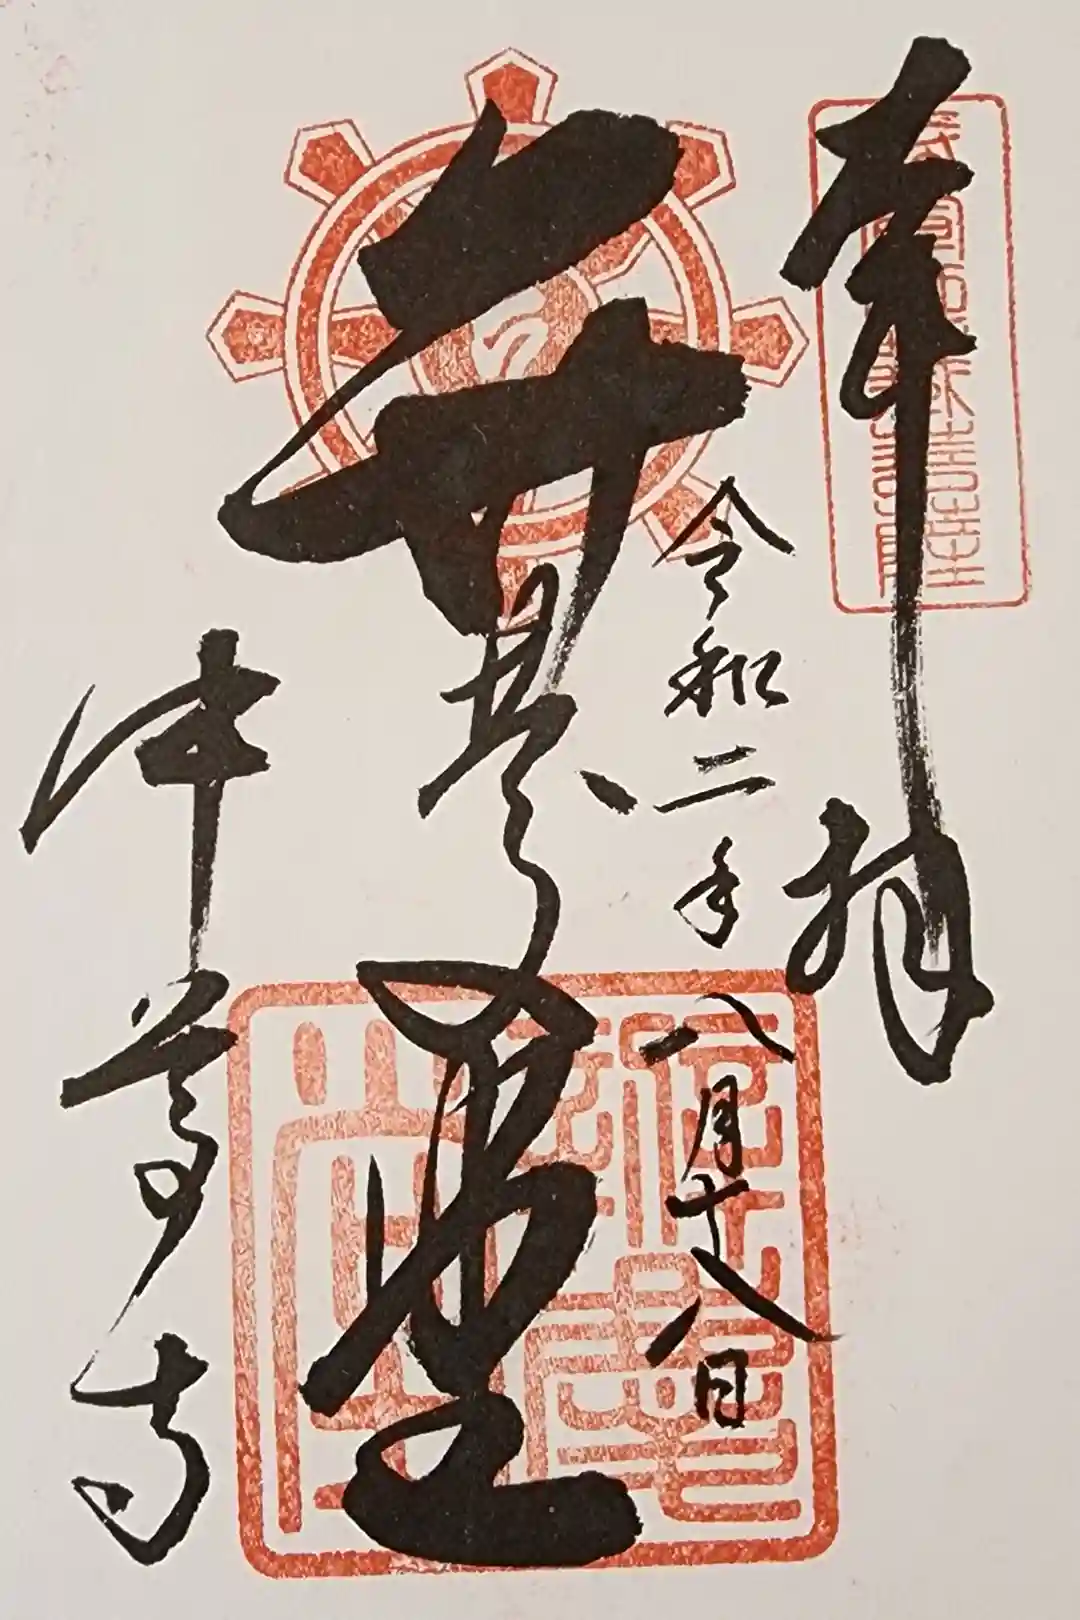 奉拝
令和二年八月十八日
弁慶堂
中尊寺